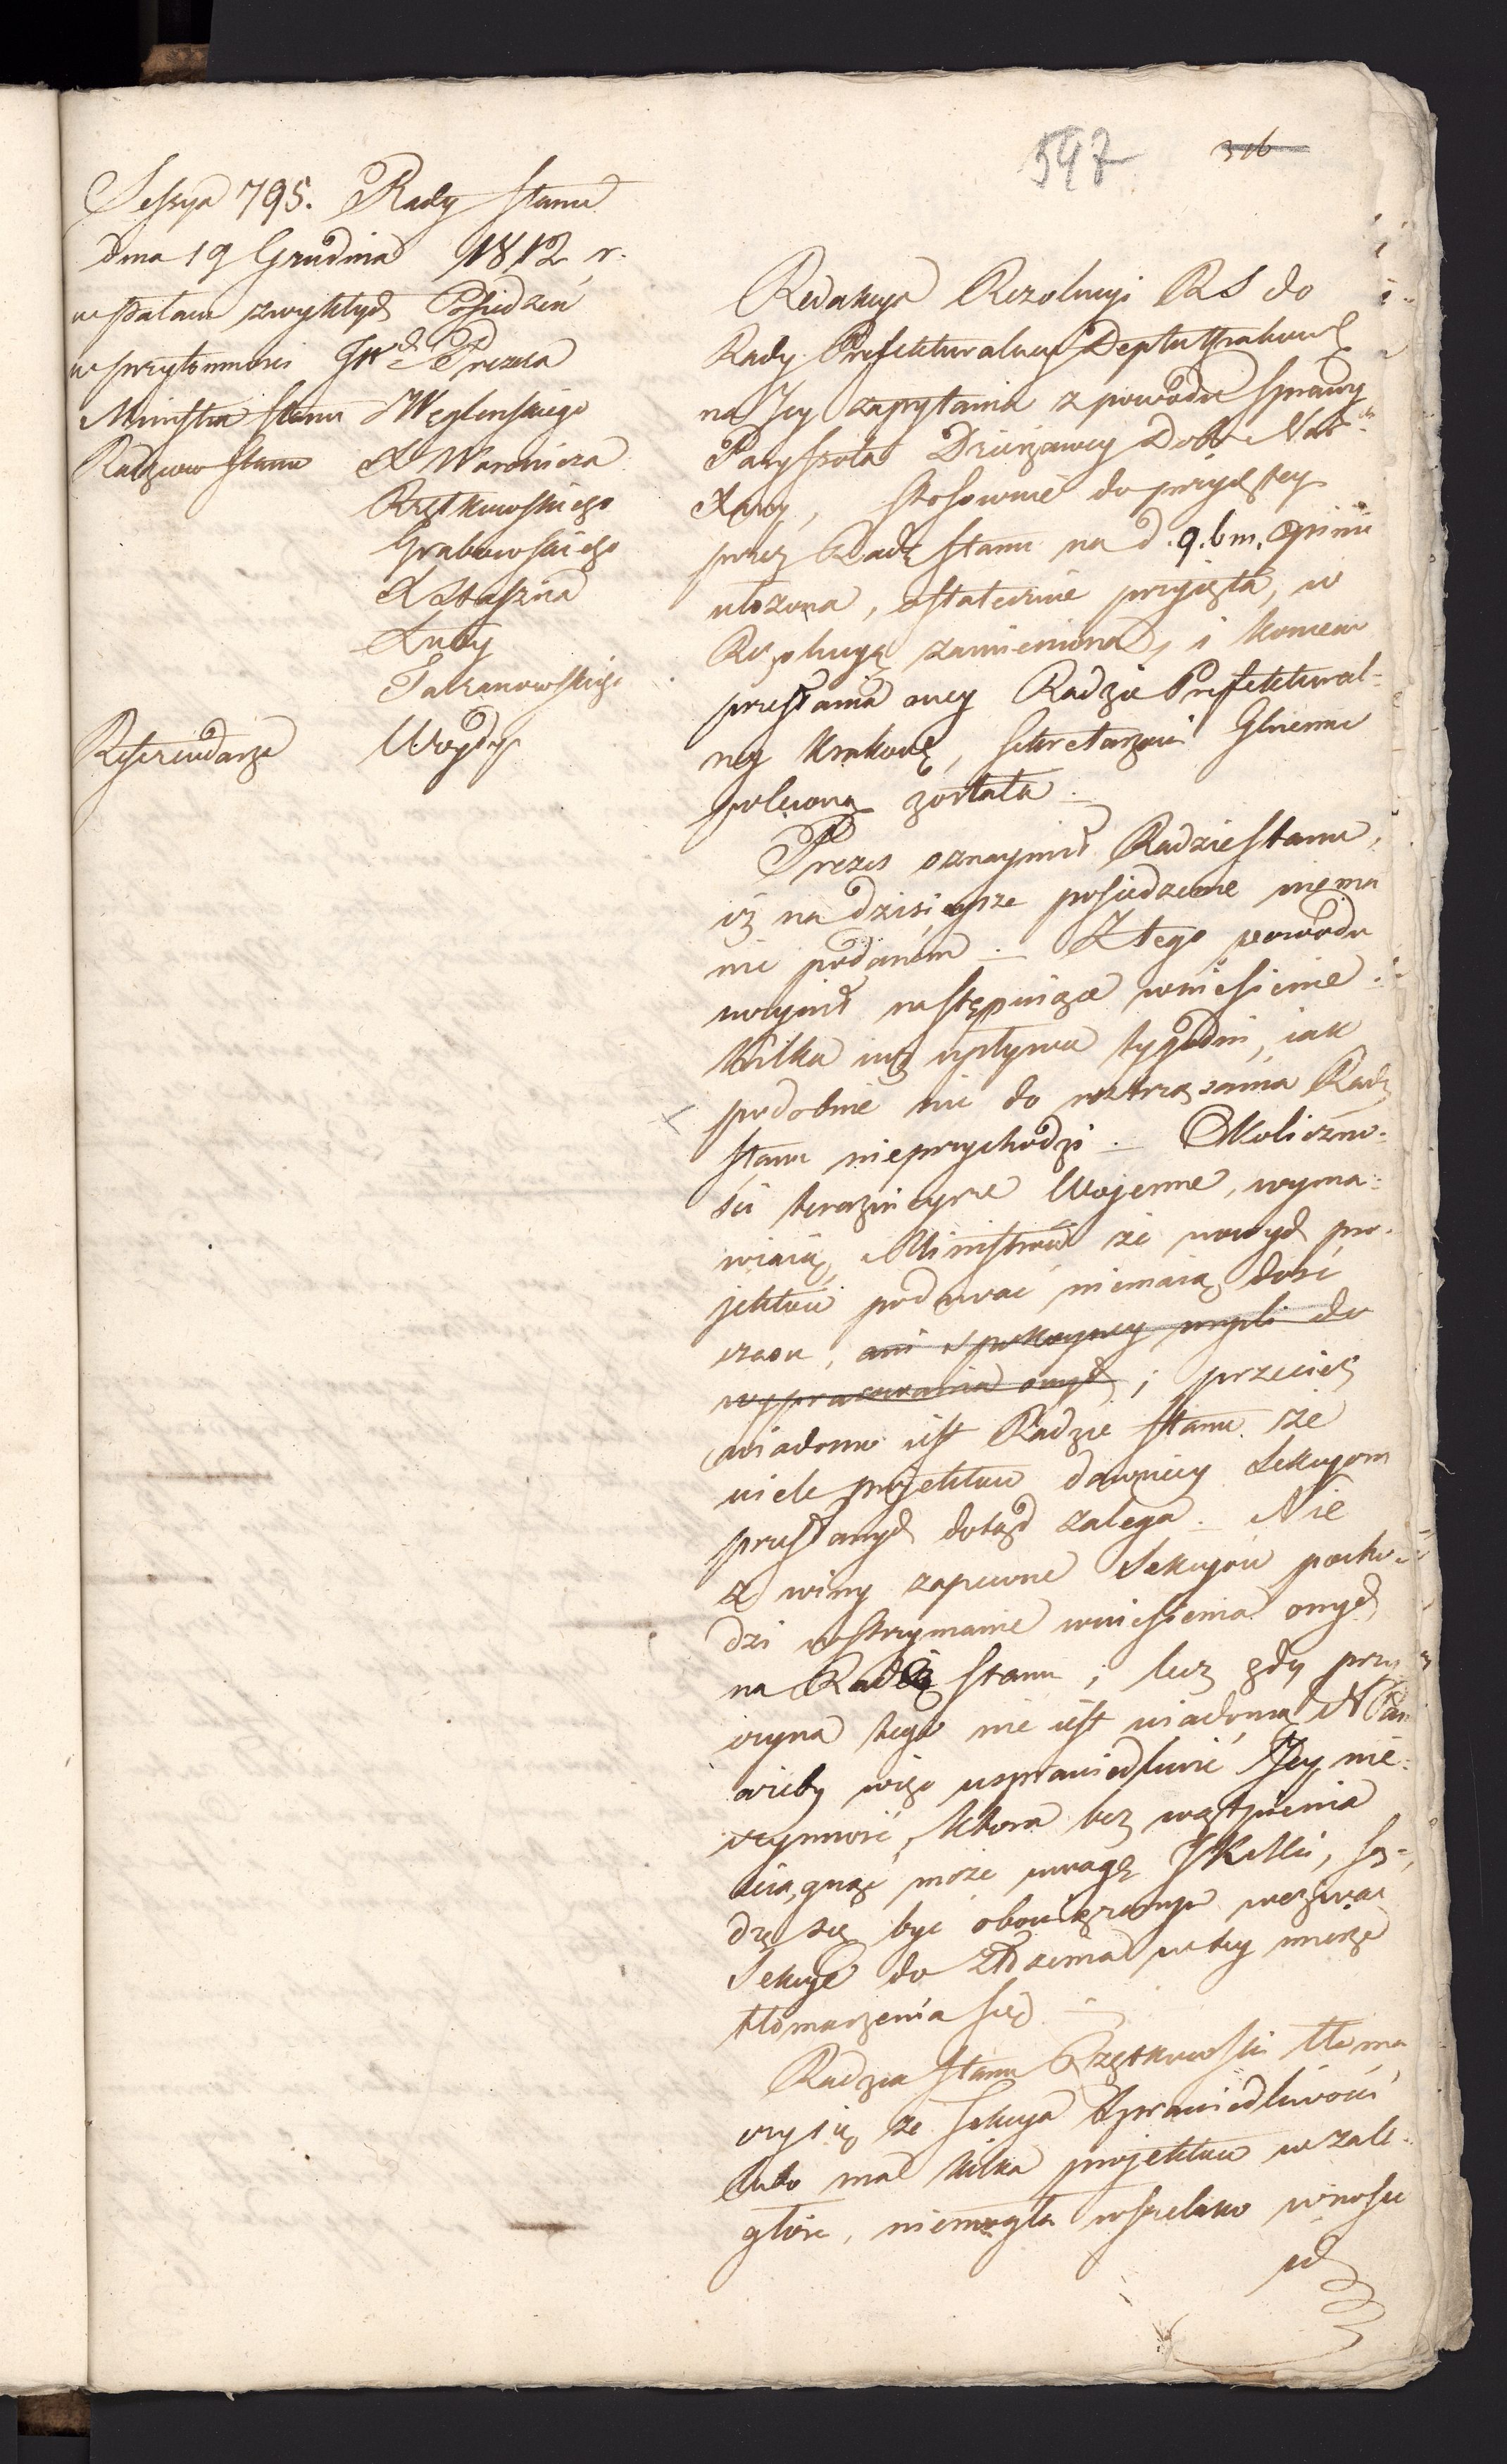 597 316
Sessya 795. Rady Stanu
dnia 19 Grudnia 1812 r.
w Pałacu zwykłych Posiedzeń
w przytomności JW Prezesa
Ministra Stanu Węglenskiego
Radzców Stanu X Woronicza
Rzętkowskiego
Grabowskiego
X Staszica
Łuby
Tarzanowskiego
Referendarza Woydy
Redakcya Rezolucyi RS do
Rady Prefekturalney Deptu Krakow
na Jey zapytania z powodu sprawy
Paryssota Dzierżawcy Dobr Nar
stosownie do przyjętey
przez Radę Stanu na d. 9. b m. opinii
ułożona, ostatecznie przyjęta, w
Rezolucyą zamieniona, i koncem
przesłania oney Radzie Prefektural-
ney Krakows, Sekretarzowi Glnemu
poleconą została.
Prezes oznaymił Radzie Stanu,
iż na dzisieysze posiedzenie niema
nic podanem. Z tego powodu
uczynił następuiące wniesienie:
kilka iuż upływa tygodni, iak
podobnie nic do roztrząsania Rady
Stanu nieprzychodzi. Okoliczno-
ści teraznieysze Wojenne, wyma-
wiaią Ministrów że nowych pro-
jektów podawać niemaią dość
czasu, ani spokoyney myśli do
wypracowania onych; przecież
wiadomo iest Radzie Stanu że
wiele projektów dawniey Sekcyom
przesłanych dotąd zalega. Nie
z winy zapewne Sekcyów pocho-
dzi wstrzymanie wniesienia onych
na Radę Stanu; lecz gdy przy
czyna tego nie iest wiadomą N Pan
ażeby więc usprawiedliwić Jey nie-
czynność, która bez wątpienia
ściągnąć może uwagę JKMci, są-
dzę się być obowiązanym wezwać
Sekcye do złożenia w tey mierze
tłomaczenia się.
Radzca Stanu Rzętkowski tłoma
czy się że Sekcya Sprawiedliwości
lubo ma kilka projektów w zale-
głości, niemogła wszelako wnosić
ich